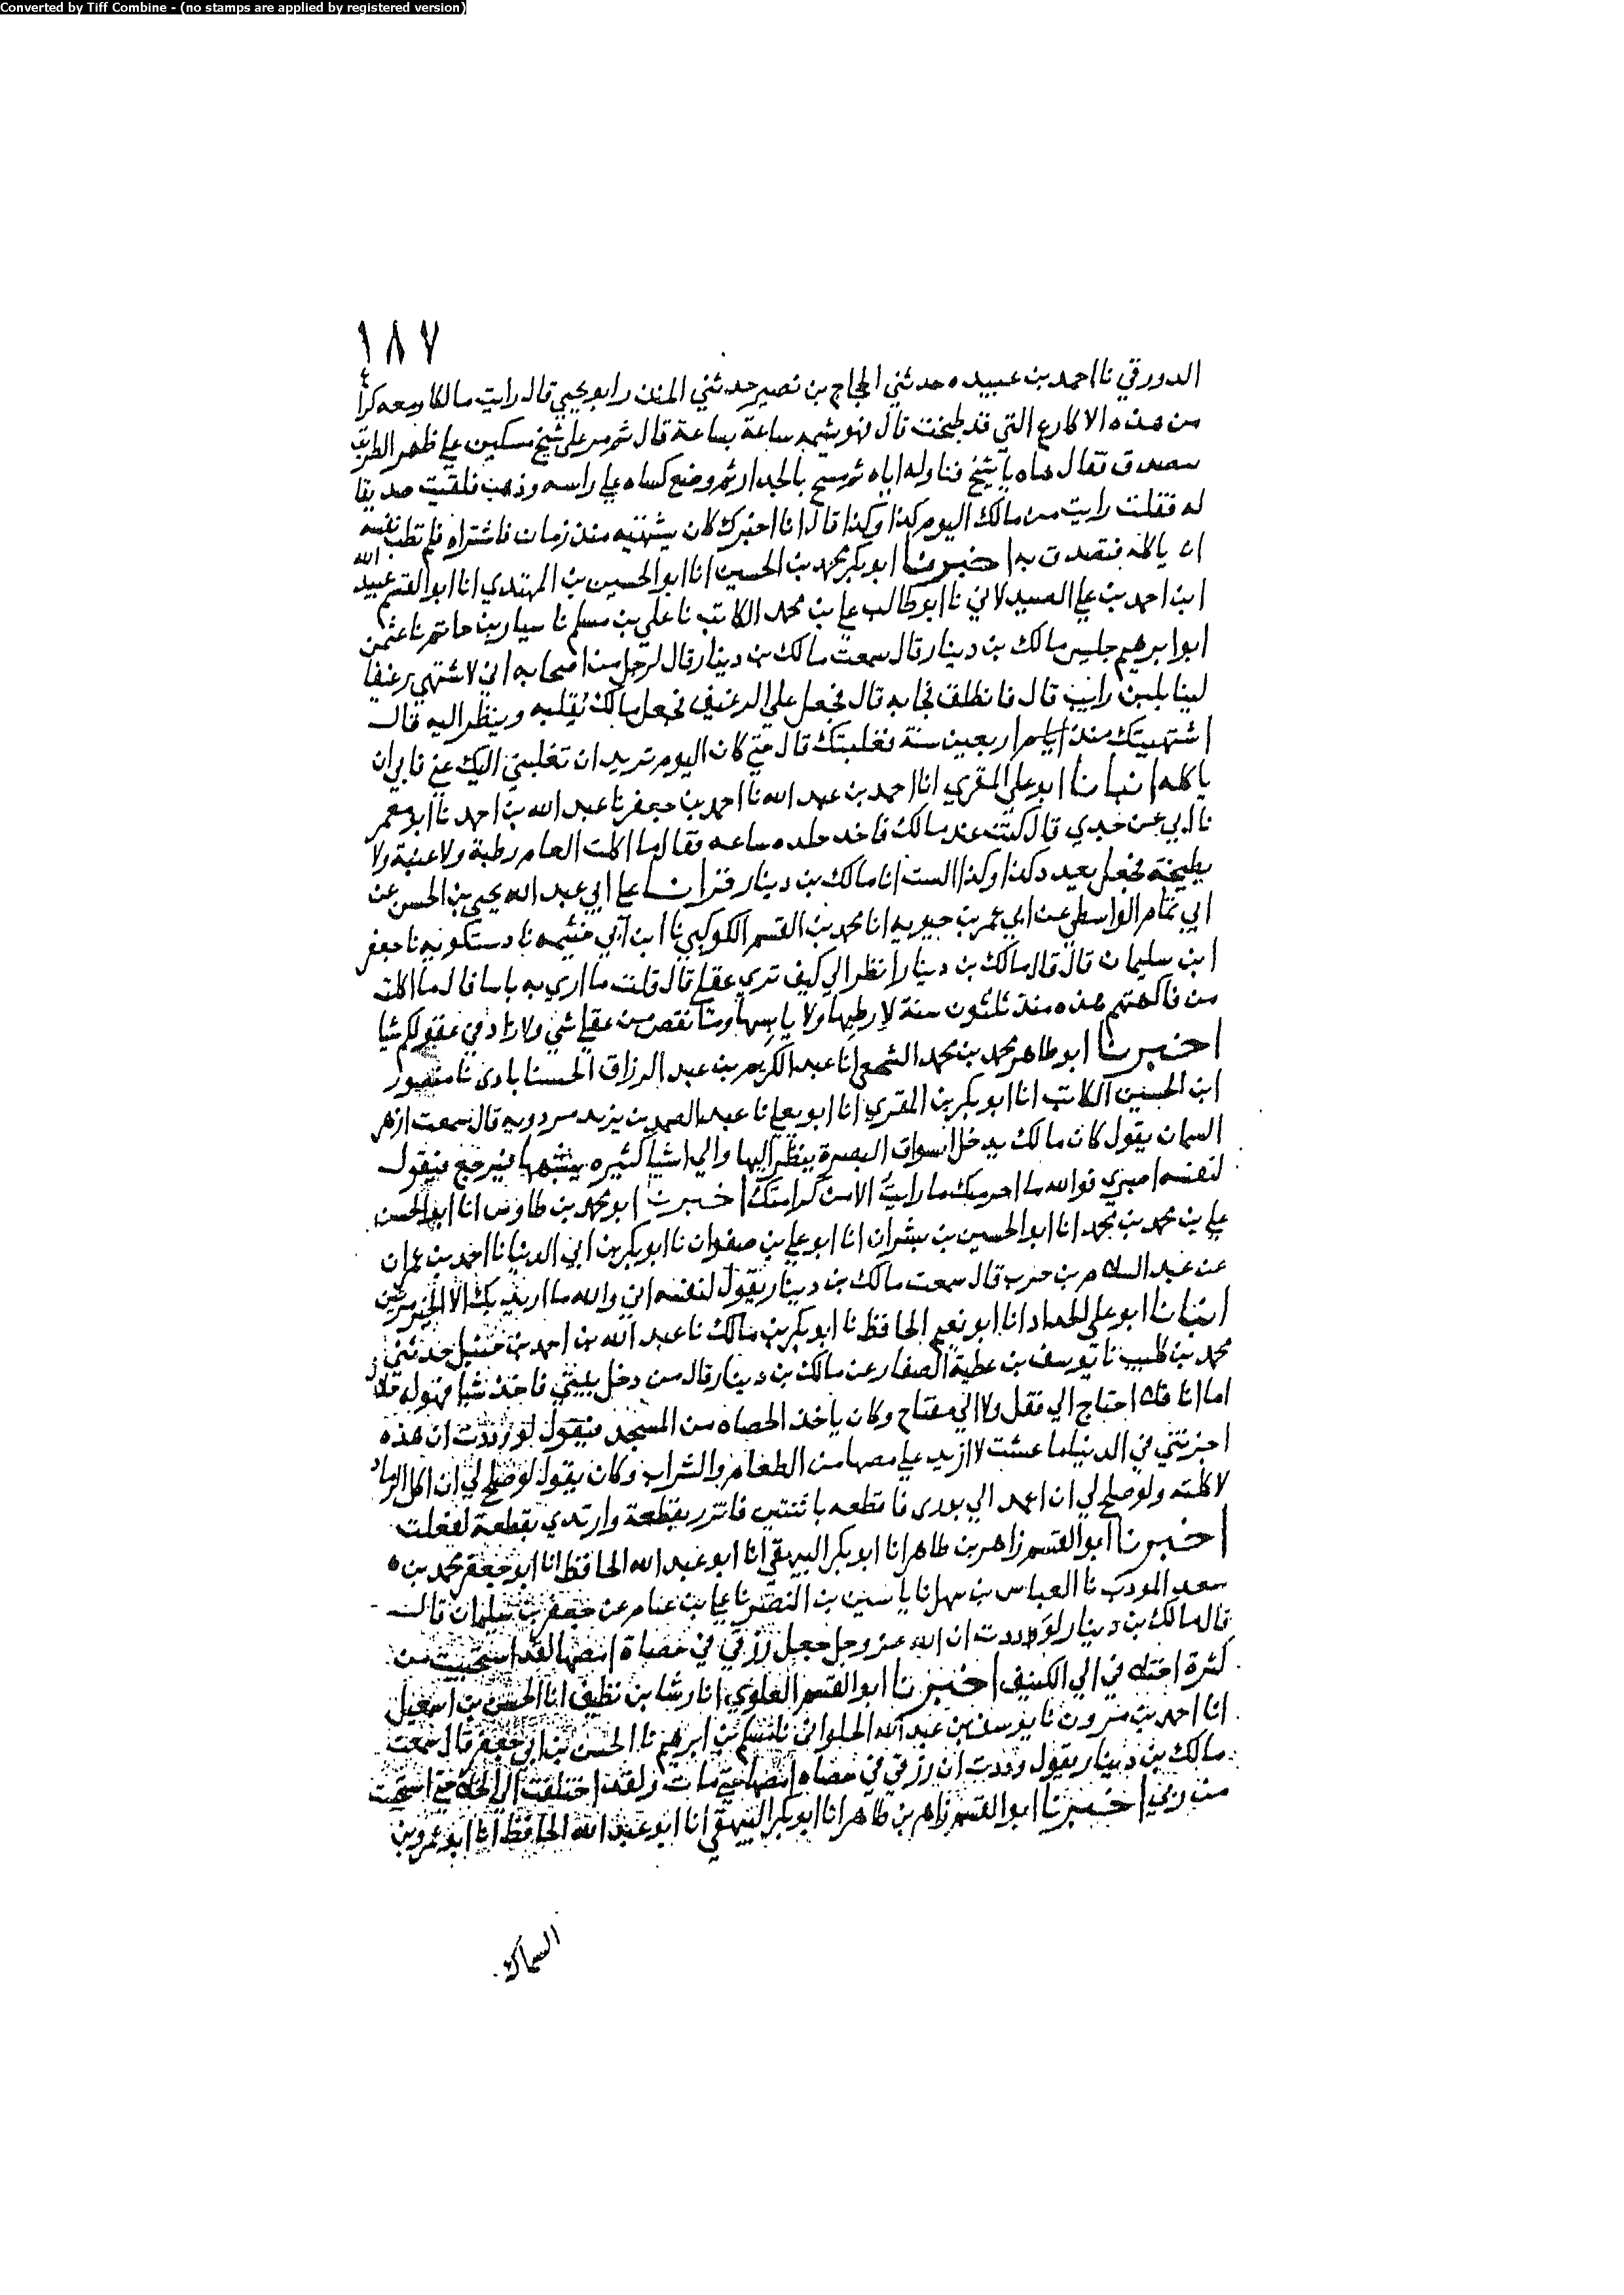 Converted by Tiff Combine - (no stamps are applied by registered version)
١٨٧
الدورقي نا احمد بن عبيده حدثني الحجاج بن نصير حدثني المنذر ابو يحيي قال رايت مالكا ومعه كراع
من هذه الاكارع التي قد طبخت قال فهو يشمه ساعة بساعة قال ثم مر علي شيخ مسكين علي ظهر الطريق
يتصدق فقال هاه يا شيخ فناوله اياه ثم مسح بالجدار ثم وضع كساه علي راسه وذهب فلقيت صديقا
له فقلت رايت من مالك اليوم كذا وكذا قال انا اخبرك كان يشتهيه منذ زمان فاشتراه فلم تطب نفسه
ان ياكله فتصدق به اخبرنا ابو بكر محمد بن الحسين انا ابو الحسين بن المهتدي انا ابو القسم عبيد الله
ابن احمد بن علي الصيدلاني نا ابو طالب علي بن محمد الكاتب نا علي بن مسلم نا سيار بن حاتم نا عثمن
ابو ابرهيم جليس مالك بن دينار قال سمعت مالك بن دينار قال لرجل من اصحابه اني لاشتهي رغيفا
لينا بلبن رايب قال فانطلق فجا به قال فجعل علي الرغيف فجعل مالك يقلبه وينظر اليه فقال
اشتهيتك منذ اربعين سنة فغلبتك قال حتي كان اليوم تريد ان تغلبني اليك عني فابي ان
ياكله انبانا ابو علي المقري انا احمد بن عبد الله نا احمد بن جعفر نا عبد الله بن احمد نا ابو معمر
نا ابي عن جدي قال كنت عند مالك فاخذ جلده ساعه فقال ما اكلت العام رطبة ولا عنبة ولا
بطيخة فجعل يعدد كذا وكذا الست انا مالك بن دينار قرانا علي ابي عبد الله يحيي بن الحسن عن
ابي تمام الواسطي عن ابي عمر بن حيويه انا محمد بن القسم الكوكبي نا ابن ابي خيثمه نا دستكويه نا جعفر
ابن سليمان قال قال مالك بن دينار انظر الي كيف تري عقلي قال قلت ما اري به باسا قال ما اكلت
من فاكهتهم هذه منذ ثلثون سنة لا رطبها ولا يابسها وما نقص من عقلي شي ولا زاد في عقولكم شيا
اخبرنا ابو طاهر محمد بن محمد الشمعي انا عبد الكريم بن عبد الرزاق الحسنابادي نا منصور
ابن الحسين الكاتب انا ابو بكر بن المقري انا ابو يعلي نا عبد الصمد بن يزيد مردويه قال سمعت ازهر
السمان يقول كان مالك يدخل اسواق البصرة ينظر اليها والي اشيا كثيره يشتهيها فيرجع فيقول
لنفسه اصبري فوالله ما احرمك ما رايت الا من كرامتك اخبرنا ابو محمد بن طاوس انا ابو الحسن
علي بن محمد بن محمد انا ابو الحسين بن بشران انا ابو علي بن صفوان نا ابو بكر بن ابي الدنيا نا احمد بن عمران
عن عبد السلام بن حرب قال سمعت مالك بن دينار يقول لنفسه اني والله ما اريد بك الا الخير مرتين
انبانا ابو علي الحداد انا ابو نعيم الحافظ نا ابو بكر بن مالك نا عبد الله بن احمد بن حنبل حدثني
محمد بن طبيب نا يوسف بن عطية الصفار عن مالك بن دينار قال من دخل بيتي فاخذ شيا فهو له حلال
اما انا فلا احتاج الي قفل ولا الي مفتاح وكان ياخذ الحصاه من المسجد فيقول لوددت ان هذه
اجزتني في الدنيا ما عشت لا ازيد علي مصها من الطعام والشراب وكان يقول لو صلح لي ان اكل الرماد
لاكلته ولو صلح لي ان اعمد الي بوري فاقطعه باثنتين فاتزر بقطعة وارتدي بقطعة لفعلت
اخبرنا ابو القسم زاهر بن طاهر انا ابو بكر البيهقي انا ابو عبد الله الحافظ انا ابو جعفر محمد بن
سعد المودب نا العباس بن سهل نا ياسين بن النضر نا علي بن عثام عن جعفر بن سليمان قال
قال مالك بن دينار لوددت ان الله عز وجل جعل رزقي في حصاة امصها لقد استحييت من
كثرة اختلافي الي الكنيف اخبرنا ابو القسم العلوي انا رشا بن نظيف انا الحسن بن اسمعيل
انا احمد بن مرون نا يوسف بن عبد الله الحلواني نا مسلم بن ابرهيم نا الحسن بن ابي جعفر قال سمعت
مالك بن دينار يقول وددت ان رزقي في حصاه امصها حتي مات ولقد اختلفت الي الخلا حتي استحييت
من ربي اخبرنا ابو القسم زاهر بن طاهر انا ابو بكر البيهقي انا ابو عبد الله الحافظ انا ابو عمرو بن
السماك